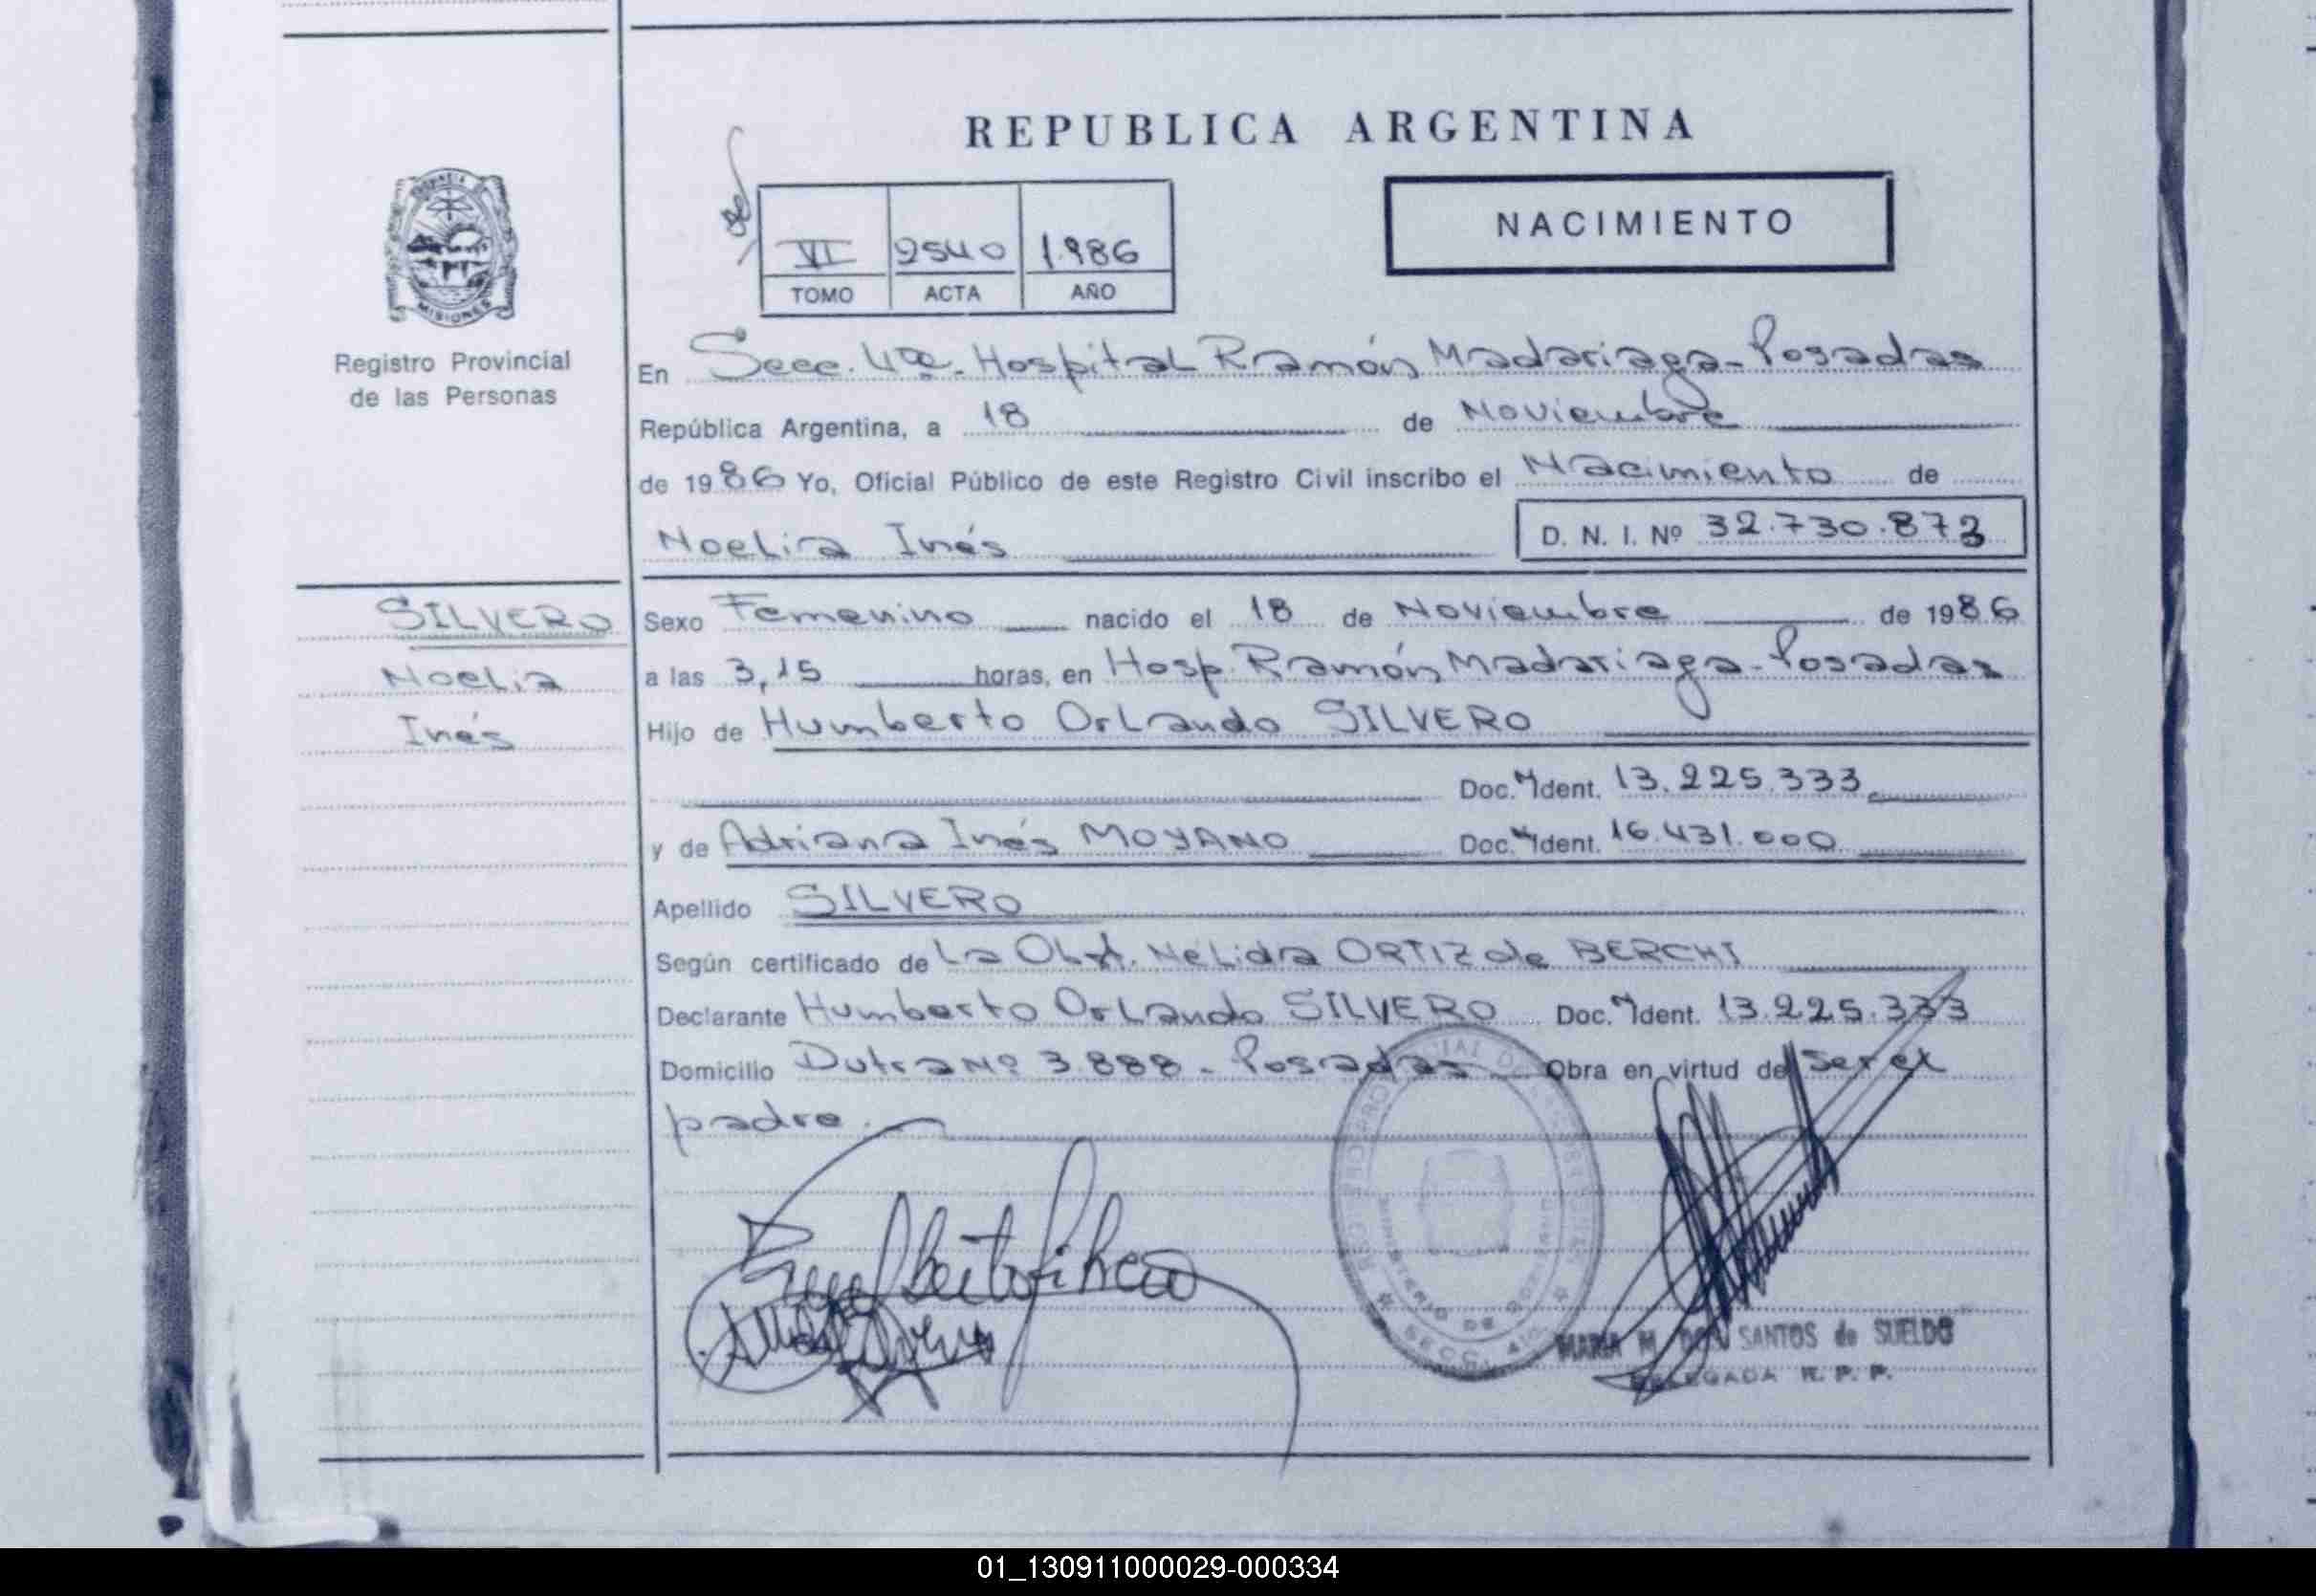 REPUBLICA ARGENTINA
NACIMIENTO
VI 2540 1.986
TOMO ACTA AÑO
PROVINCIA DE
MISIONES
Registro Provincial
de las Personas
En Secc. 4ta. Hospital Ramón Madariaga - Posadas
República Argentina, a 18 de Noviembre
de 1986 Yo, Oficial Público de este Registro Civil inscribo el Nacimiento de
Noelia Inés D. N. I. Nº 32.730.873
SILVERO
Noelia
Inés
Sexo Femenino nacido el 18 de Noviembre de 1986
a las 3,15 horas, en Hosp. Ramón Madariaga - Posadas
Hijo de Humberto Orlando SILVERO
Doc. Ident. 13.225.333
y de Adriana Inés MOYANO Doc. Ident. 16.431.000
Apellido SILVERO
Según certificado de La Obst. Nelida ORTIZ de BERCHI
Declarante Humberto Orlando SILVERO Doc. Ident. 13.225.333
Domicilio Dutra Nº 3.888 - Posadas Obra en virtud de Ser el
padre.
MINISTERIO DE GOBIERNO
SECC. 4ta
MARIA M. DOS SANTOS de SUELDO
DELEGADA R. P. P.
01_130911000029-000334